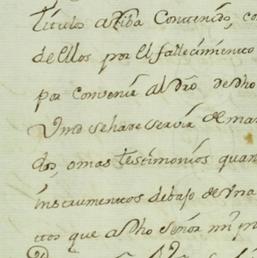 titulo arriba Contenido, co
de Ellos por el fallecimiento
por convenir al dro de dho
Vmd se hade servir de man
dos, o mas testimonios quan
instrumentos debajo de Vna
ctos que a dho señor mi p